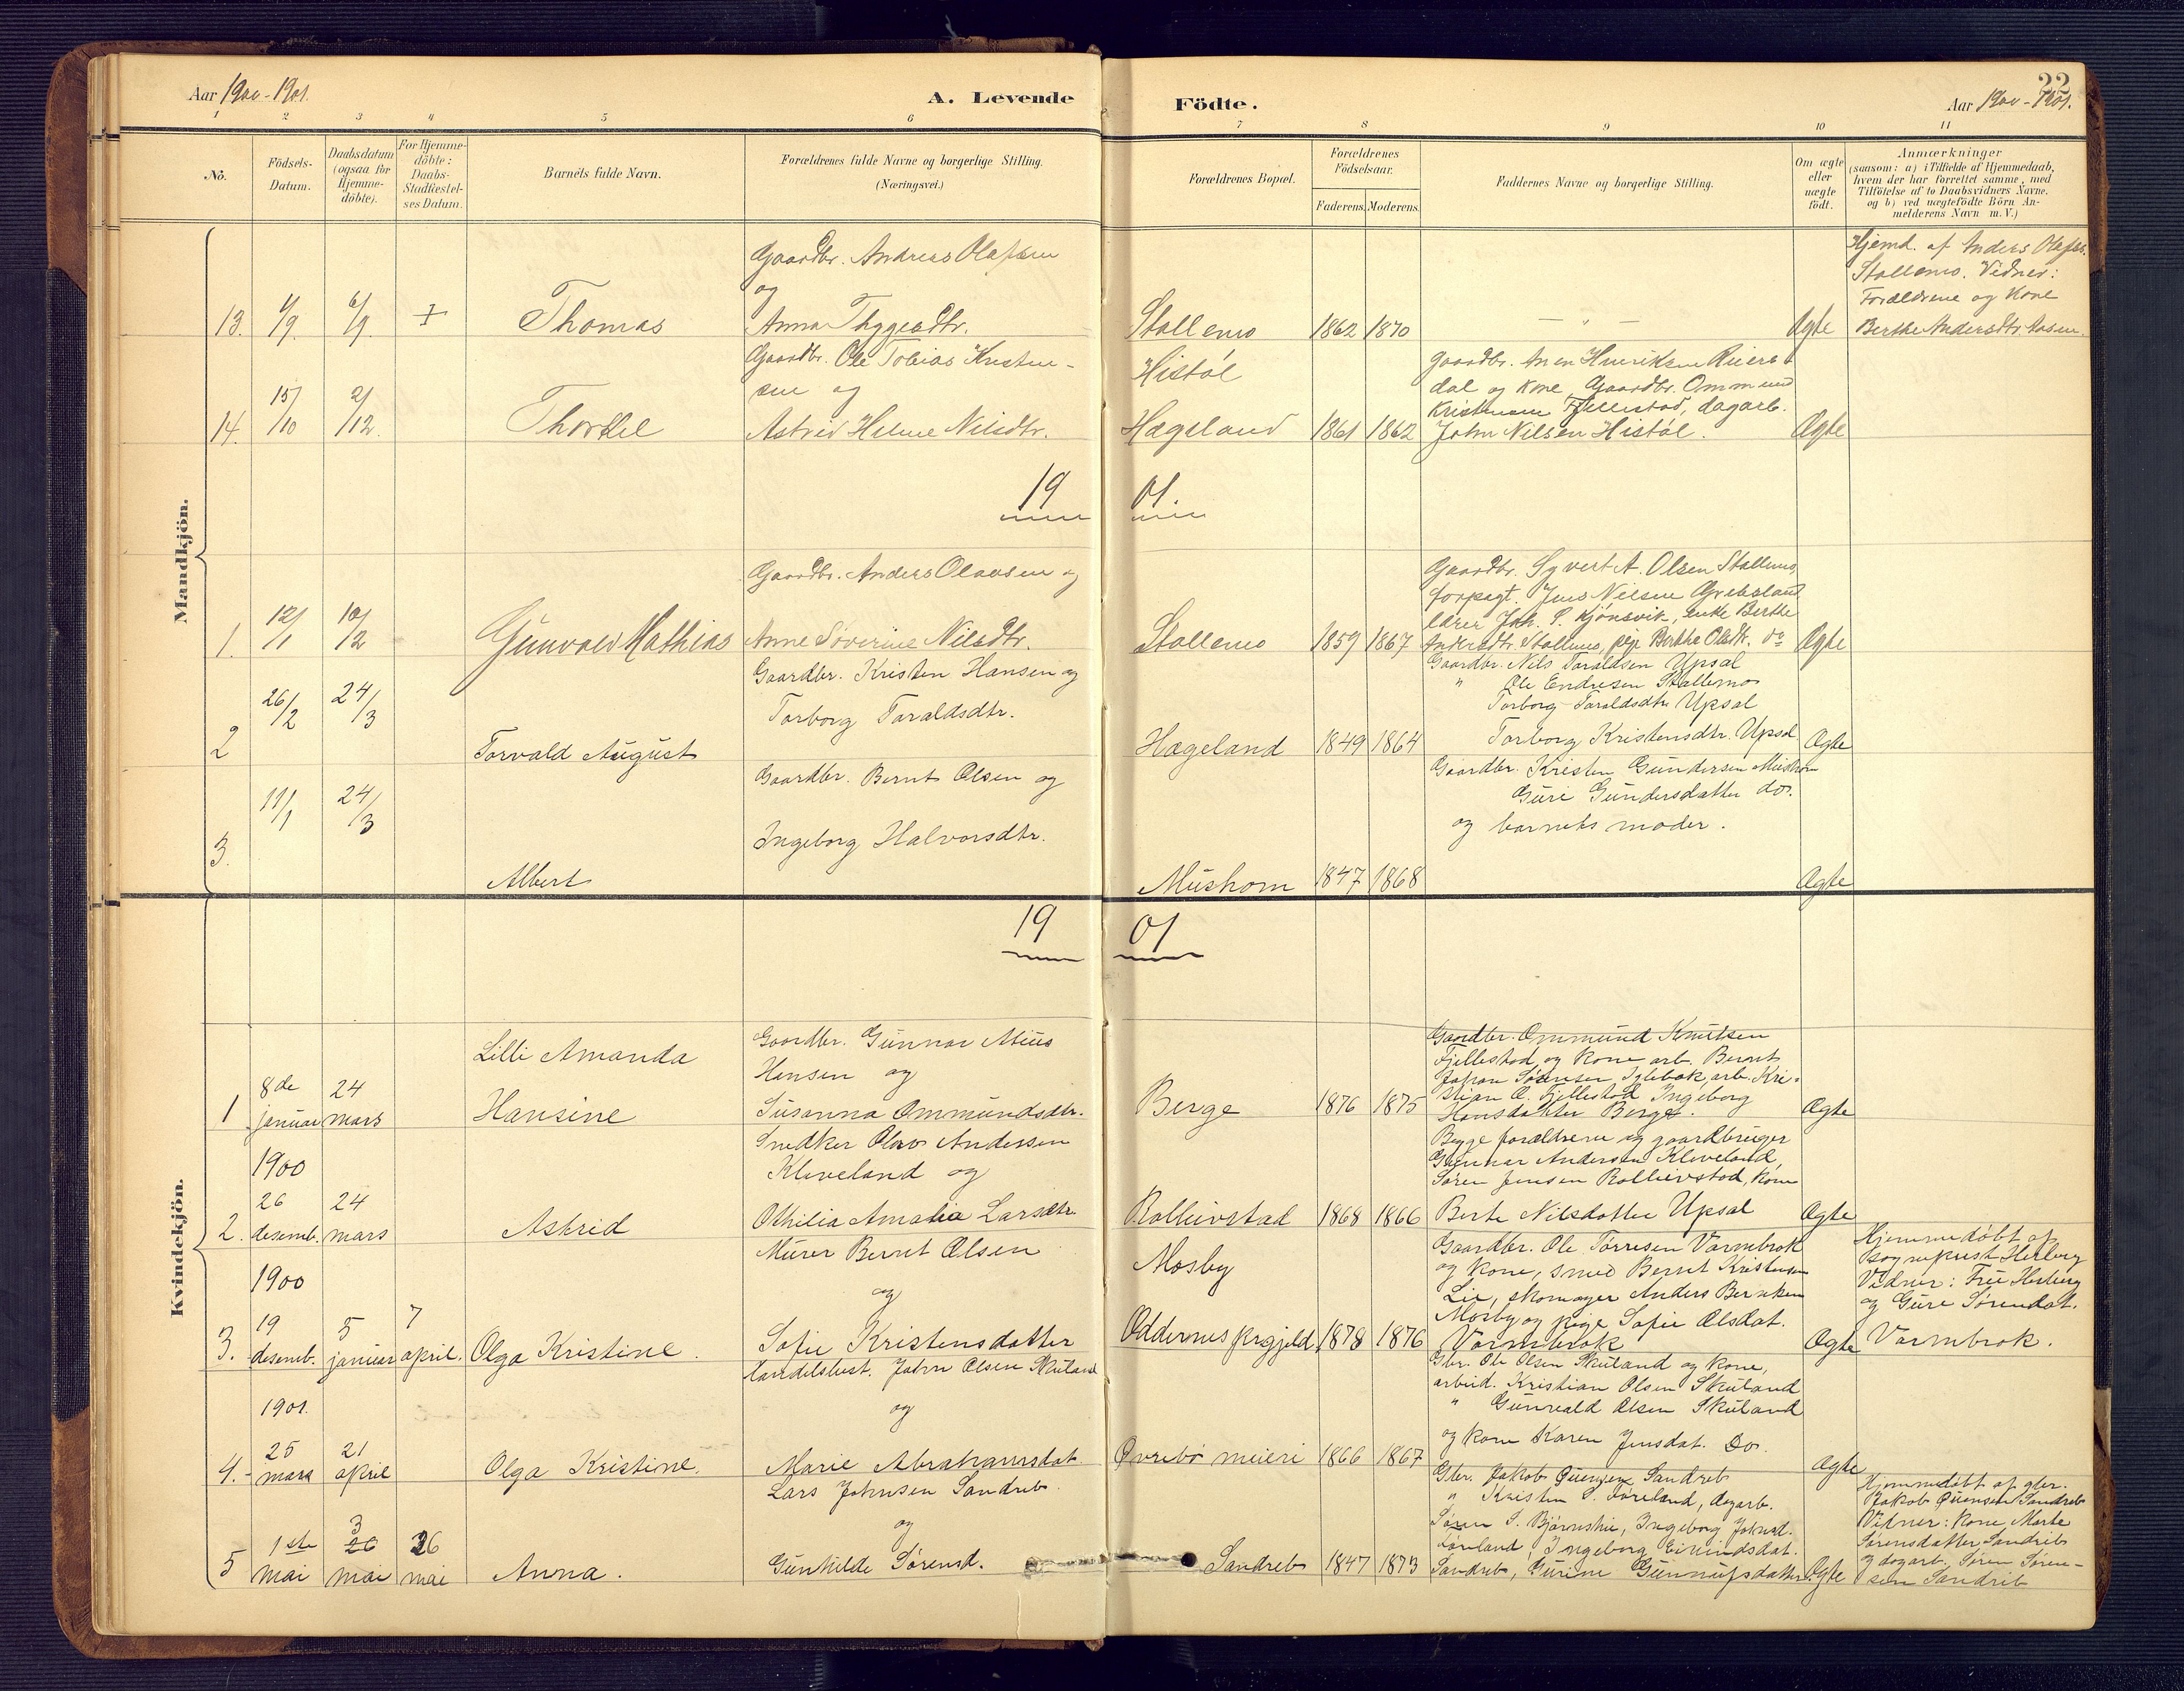 Aar 1900-1901.
A. Levende
Födte.
22
Aar 1900-1901.
1 2 3 4 5 6 7 8 9 10 11
No.
Födsels-Datum.
Daabsdatum (ogsaa for Hjemme-döbte).
For Hjemme-döbte: Daabs-Stadfæstel-ses Datum.
Barnets fulde Navn.
Forældrenes fulde Navne og borgerlige Stilling. (Næringsvei.)
Forældrenes Bopæl.
Forældrenes Födselsaar.
Faderens. Moderens.
Faddernes Navne og borgerlige Stilling.
Om ægte eller uægte födt.
Anmærkninger
(saasom: a) i Tilfælde af Hjemmedaab,
hvem der har forrettet samme, med
Tilföielse af to Daabsvidners Navne,
og b) ved uægtefödte Börn An-
melderens Navn m. V.)
Mandkjön.
13. 4/9 6/9 Thomas
Gaardbr. Andreas Olafsen
og
Anna Thygesdtr.
Stallemo 1862 1870 — " — Ægte
Hjemd. af Anders Olafss.
Stallemo. Vidner:
Forældrene og Kone
Berthe Andersdtr.
14. 15/10 2/12
Gaardbr. Ole Tobias Kristen-
sen og
Astrid Helene Nilsdtr.
Histöl
Hægeland 1861 1862
Gaardbr. Henriksen Reiers
dal og Kone, Gaardbr. Ommund
Kristensen Fjellestad, dagarb.
John Nilsen Histöl. Ægte
1901.
1. 12/1 10/2 Gunvald Mathias
Gaardbr. Anders Olavsen og
Anne Sörine Nilsdtr.
Stallemo 1859 1867
Gaardbr. Syvert A. Olsen Stallemo,
forpagt. Jens Nilsen
lærer Joh. S. Kjönsvik, enke Berthe
Andersdtr. Stallemo, pige Berthe Olsdtr. do Ægte
2 26/2 24/3 Torvald August
Gaardbr. Kristen Hansen og
Torborg Taraldsdtr.
Hægeland 1849 1864
Gaardbr. Nils Taraldsen Upsal
" Ole Endresen Stallemo
Torborg Taraldsdtr Upsal
Torborg Kristensdtr. Upsal Ægte
3. 11/1 24/3 Albert
Gaardbr. Bernt Olsen og
Ingeborg Halvorsdtr.
Mushom 1847 1868
Gaardbr. Kristen Gundersen Mushom
Guri Gundersdatter do.
og barnets moder. Ægte
Kvindekjön.
1901
1 8de januar 24 mars
Lilli Amanda
Hansine
Gaardbr. Gunnar
Hansen og
Susanna Ommundsdtr.
Berge 1876 1875
Gaardbr. Ommund Knutsen
Fjellestad og Kone arb. Bernt
Johan Sörensen Iglebæk, arb. Kri-
stian O. Fjellestad Ingeborg
Hansdatter Berge. Ægte
2. 1900 26 desemb. 24 mars Astrid
Snedker Olav Andersen
Kleveland og
Othilia Amalia Larsdtr.
Rolleivstad 1868 1866
Begge forældrene og gaardbruger
Gunnar Andersen Kleveland,
Sören Jensen Rolleivstad, Kone
Berte Nilsdatter Upsal Ægte
3. 1900 19 desemb. 5 januar 7 april. Olga Kristine.
Murer Bernt Olsen
og
Sofie Kristensdatter
Mosby
Oddernes prgjeld 1878 1876
Gaardbr. Ole Torresen Varmbrok
og Kone, smed Bernt Kristensen
Lie, skomager Anders Berntsen
Mosby og pige Sofie Olsdat.
Varmbrok Ægte
Hjemmedöbt af
sogneprest Herberg
Vidner: Frue Herberg
og Guri Sörensdat.
Varmbrok.
4. 1901. 25 mars 21 april Olga Kristine.
Handelsbest. John Olsen Skuland
og
Marie Abrahamsdat.
Øvrebö meieri 1866 1867
Gbr. Ole Olsen Skuland og Kone,
arbeid. Kristian Olsen Skuland
" Gunvald Olsen Skuland
og Kone Karen Jensdat. Do. Ægte
5 1ste mai 3 mai 26 mai Anna.
Lars Johnsen Sandreb.
og
Gunhilde Sörensd.
Sandreb 1847 1873
Gbr. Jakob Sandreb
" Kristen S. Töreland, dagarb.
Sören S. Björnstie, Ingeborg Johnsd.
Ingeborg Eivindsdat.
Sandreb, Gurine Gunnufsdatter. Ægte
Hjemmedöbt af gbr.
Jakob Sandreb
Vidner: Kone Marte
Sörensdatter Sandrib
og dagarb. Sören Sören-
sen Sandrib